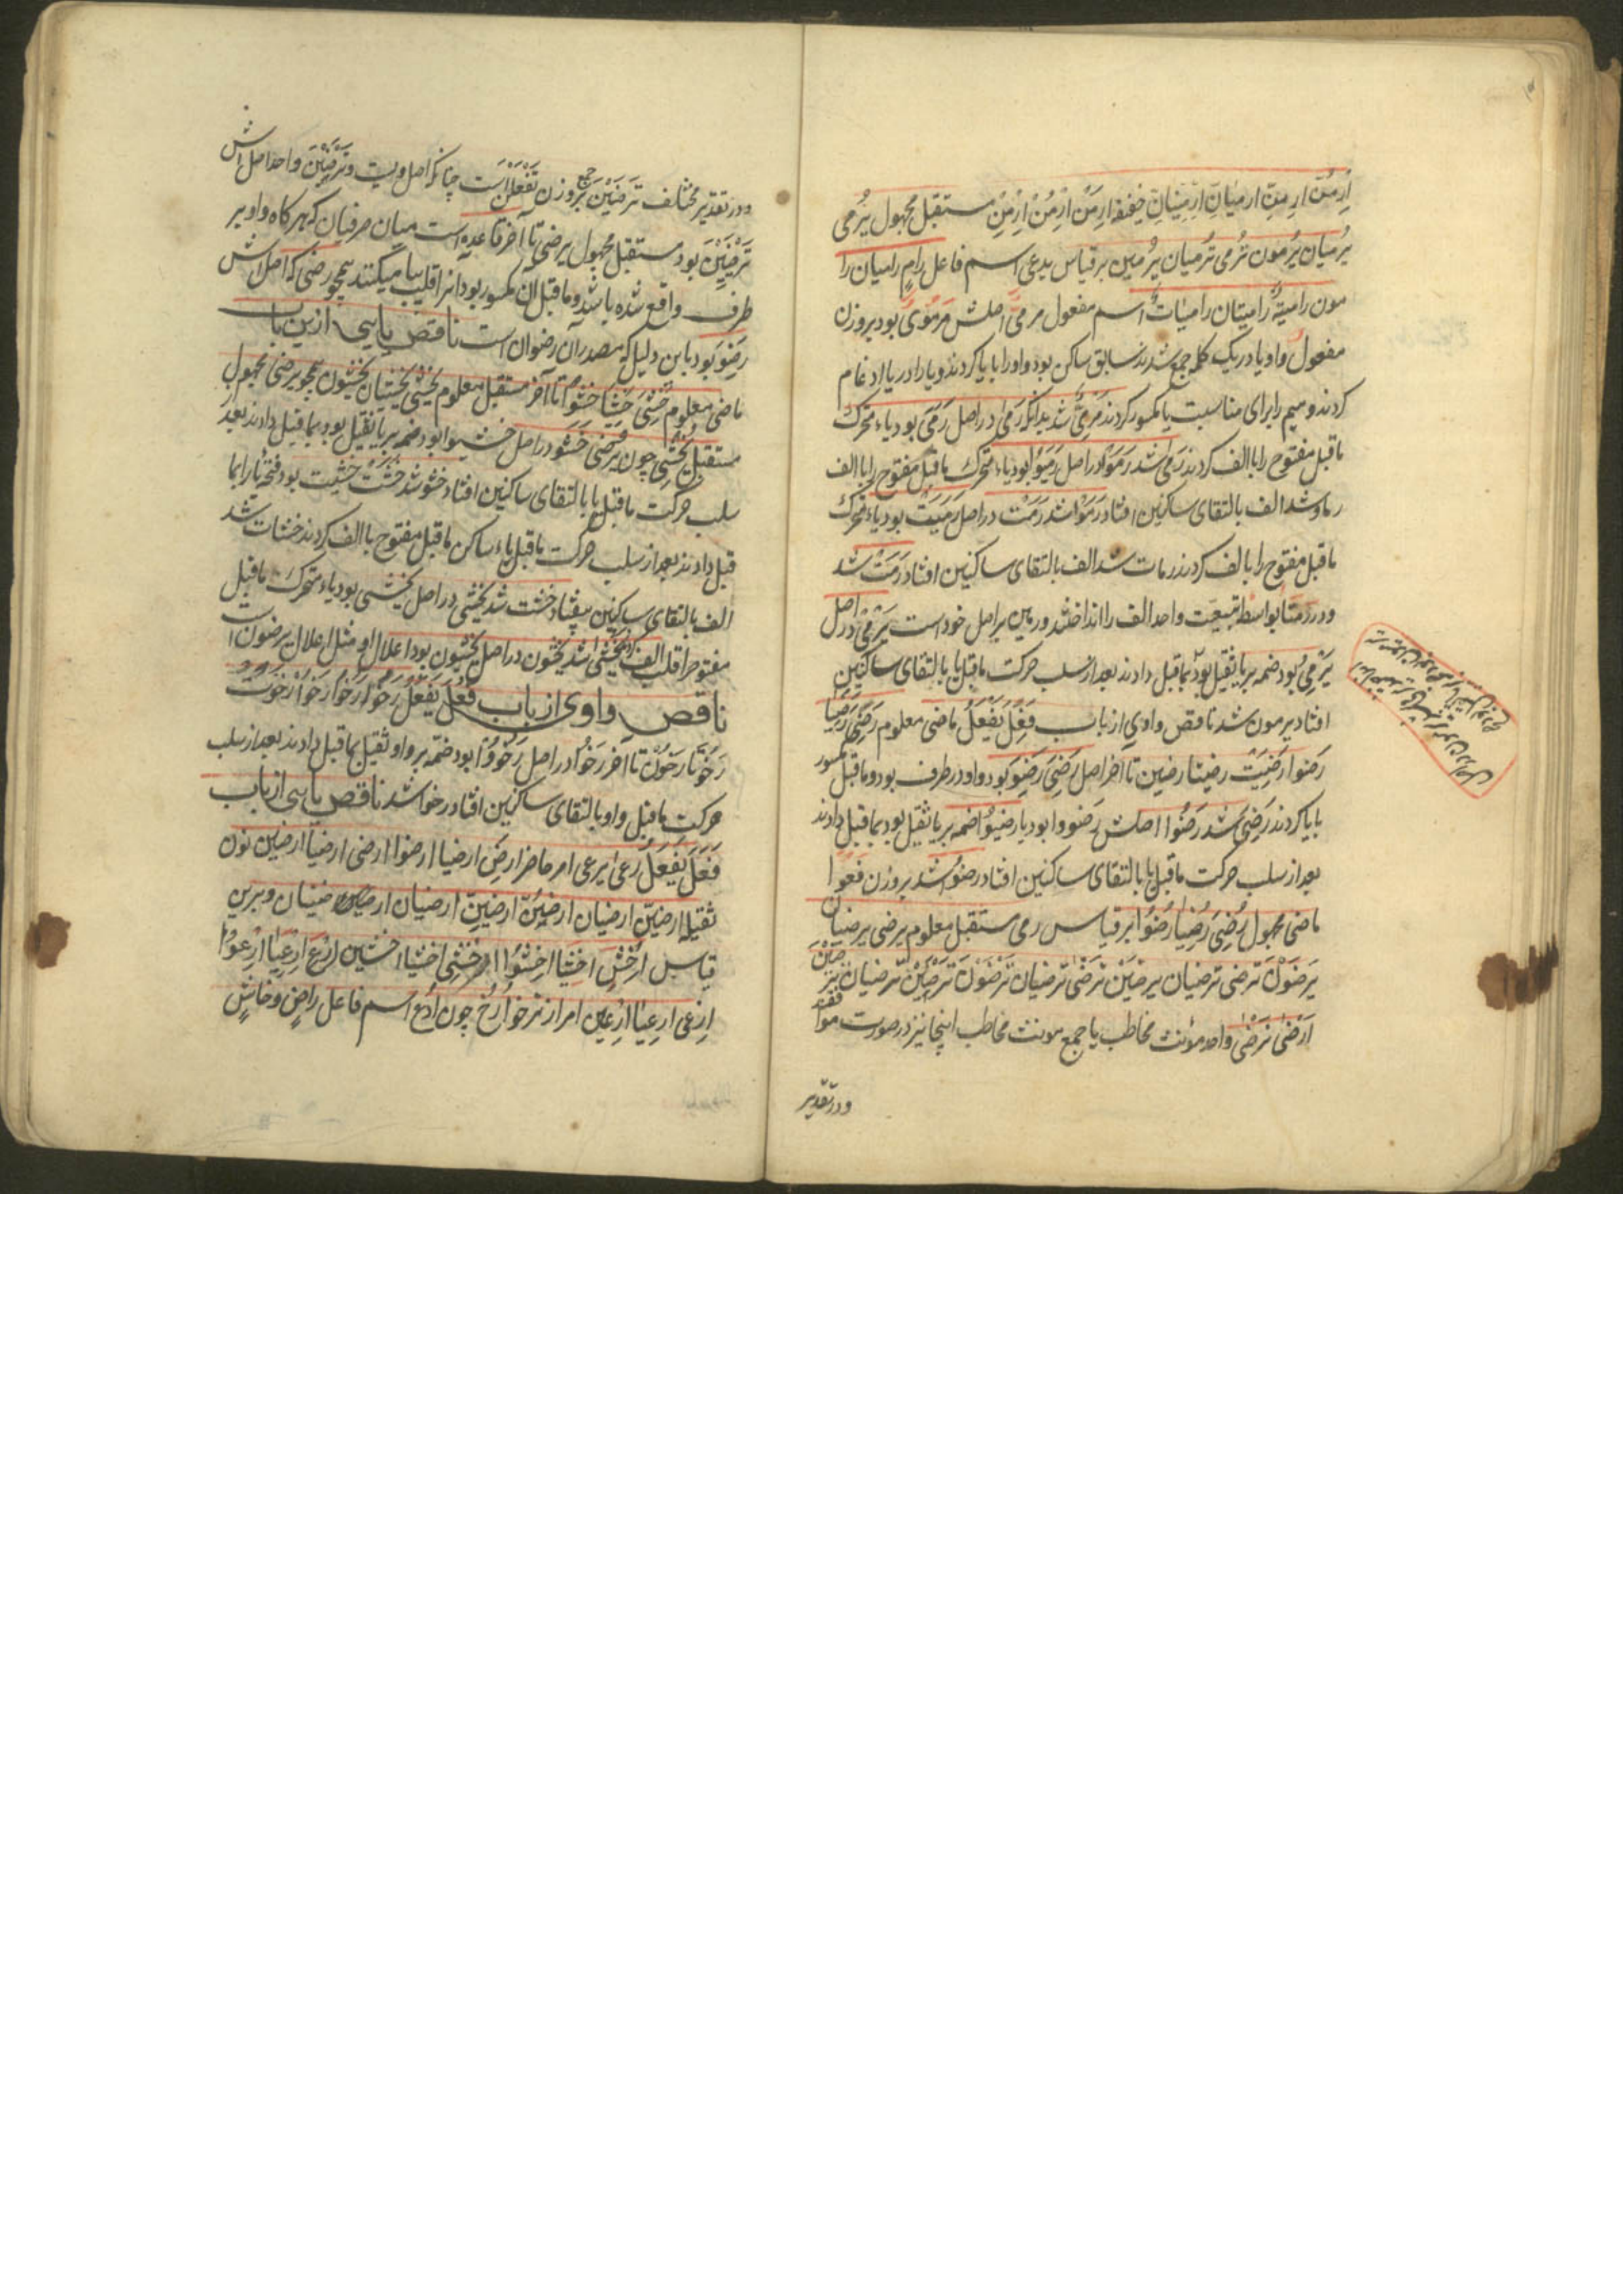 اِرْمُنَّ اِرمِنَّ ارمیانِّ اِرْمِینانِّ خفیفه اِرمَنْ اِرْمُنْ اِرْمِنْ مستقبل مجهول یُرمی
یُرمیان یُرمون تُرمی تُرمیان یُرمین برقیاس یدعی اسم فاعل رامٍ رامیان را
مون رامیةٌ رامیتان رامیاتٌ اسم مفعول مرمیٌّ اصلش مَرمُویٌ بود بروزن
مفعولٌ واو یا در یک کلمه جمع شدند سابق ساکن بود واو را با یا کردند و یا را در یا ادغام
کردند و میم را برای مناسبت یا مکسور کردند مَرمِیٌّ شد بدانکه رَمیٰ در اصل رَمَیَ بود یاء متحرک
ماقبل مفتوح را با الف کردند رَمیٰ شد رَمَوْا در اصل رَمَیُوْا بود یاء متحرک ماقبل مفتوح را با الف
رماو شد الف بالتقای ساکنین افتاد رَمَوْا شد رَمَتْ در اصل رَمَیَتْ بود یاء متحرک
ماقبل مفتوح را با لف کردند رمات شد الف بالتقای ساکنین افتاد رَمَتْ شد
و در رَمَتَا بواسطه تبعیت واحد الف را انداختند و رمین بر اصل خود است یَرْمِیْ در اصل
یَرْمِیُ بود ضمه بر یا ثقیل بود بماقبل دادند بعد از سلب حرکت ماقبل یا بالتقای ساکنین
افتاد یرمون شد ناقص واوی از باب فَعِلَ یَفْعَلُ ماضی معلوم رَضِیَ رَضِیَا
رَضوا رَضِیَتْ رضیتا رضین تا اخر اصل رَضِیَ رَضِوَ بود واو در طرف بود و ماقبل مکسور
با یا کردند رَضِیَ شد رَضُوْا اصلش رَضِوُوا بود یا رَضِیُوْا ضمه بر یا ثقیل بود بماقبل دادند
بعد از سلب حرکت ماقبل یا بالتقای ساکنین افتاد رضُوْا شد بروزن فَعُوْا
ماضی مجهول رُضِیَ رُضِیَا رُضُوْا بر قیاس رمی مستقبل معلوم یرضی یرضیان
یَرضَوْنَ ترضی ترضیان یرضَیْنَ تَرضیٰ ترضیان تَرْضَوْنَ تَرْضَیْنَ ترضیان تَرضَیْنَ
اَرْضیٰ نَرْضیٰ واحد مؤنث مخاطب با جمع مونث مخاطب اینجا نیز در صورت موافقند
و در تقدیر
و در تقدیر مختلف تَرضَیْنَ جمع بروزن تَفْعَلْنَ است چنانکه اصل ویست و تَرْضَیْنَ واحد اصلش
تَرْضَیِیْنَ بود مستقبل مجهول یرضی تا آخر قاعده است میان صرفیان که هر کاه واو بر
طرف واقع شده باشد و ماقبل ان مکسور بود انرا قلب بیا میکنند همچو رضی که اصلش
رَضِوَ بود باین دلیل که مصدر آن رضوان است ناقص یایی ازین باب
ماضی معلوم خَشِیَ خَشِیَا خَشُوْا تا آخر مستقبل معلوم یخشی یخشیان یخشون همچو یرضی مجهول
مستقبل یُخْشیٰ چون یُرْضیٰ خَشُو در اصل خشیوا بود ضمه بر یا ثقیل بود بماقبل دادند بعد از
سلب حرکت ماقبل یا بالتقای ساکنین افتاد خشو شد خشت خشیت بود فتحه یا را بما
قبل دادند بعد از سلب حرکت ماقبل یاء ساکن ماقبل مفتوح با الف کردند خشات شد
الف بالتقای ساکنین بیفتاد خشت شد یخشی در اصل یخشی بود یاء متحرک ماقبل
مفتوح را قلب الف کردند یخشی شد یخشون در اصل یخشیون بود اعلال او مثل اعلال یرضون است
ناقص واوی از باب فَعُلَ یَفْعُلُ رَخُوَ رَخُوَا رَخُوْا رَخُوَتْ
رَخُوَتَا رَخُوْنَ تا اخر رَخُوْا در اصل رَخُوُوْا بود ضمّه بر واو ثقیل بماقبل دادند بعد از سلب
حرکت ماقبل واو بالتقای ساکنین افتاد رخوا شد ناقص یایی از باب
فَعَلَ یَفْعَلُ رعیٰ یرعی امر حاضر ارضَ ارضیا ارضوا ارضی ارضیا ارضین نون
ثقیله ارضَیَنَّ ارضیان ارضَوُنَّ ارضَیِنَّ ارضیان ارضینان و برین
قیاس اِخْشَ اخشَیا اخشَوْا اخْشَی اخشیا اخشین اِرْعَ اِرعَیَا اِرْعَوْا
اِرْعَی اِرعَیَا اِرْعَین امر از ترخو اُرْخُ چون اُدْعُ اسم فاعل راضٍ و خاشٍ